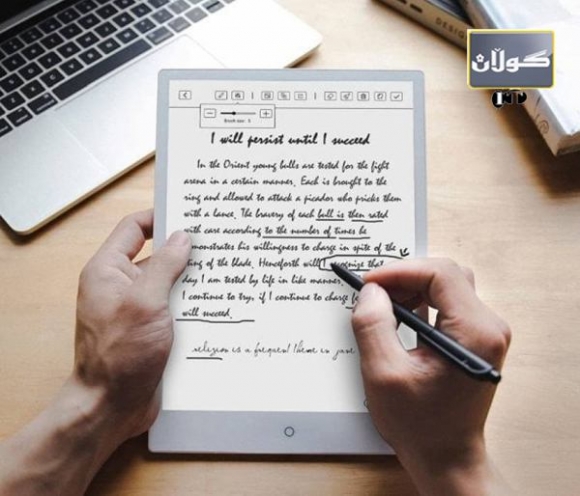 گولان
DESIGN
Brush size : 5
I will persist until I succeed
In the Orient young bulls are tested for the fight
arena in a certain manner. Each is brought to the
ring and allowed to attack a picador who pricks them
with a lance. The bravery of each bull is then rated
with care according to the number of times he
monstrates his willingness to charge in spite of the
ting of the blade. Henceforth will I recognize that
day I am tested by life in like manner.
I continue to try, if I continue to charge
will succeed.
religion is a frequent theme in